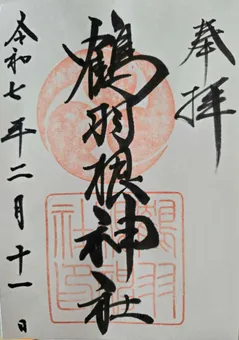 奉拝
鶴羽根神社
令和七年二月十一日